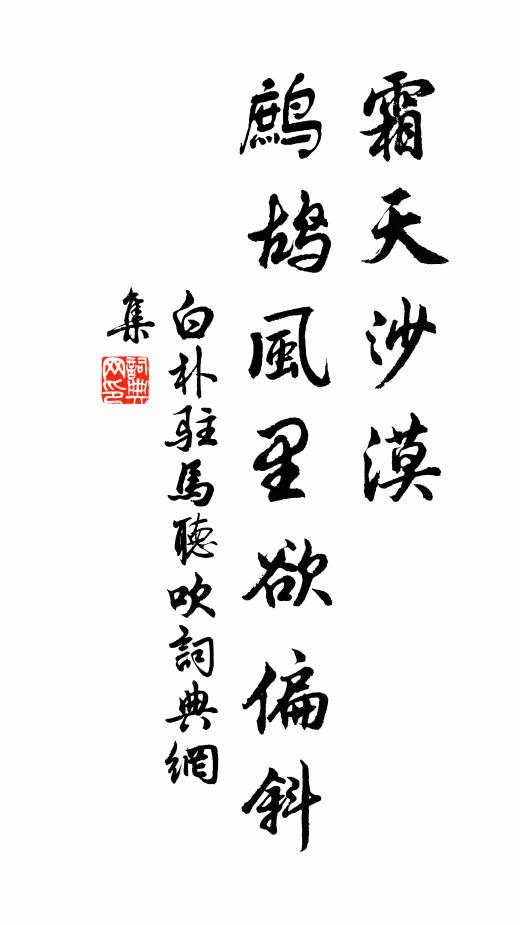 霜天沙漠
鹧鸪風里欲偏斜
白朴驻馬聴吹詞典網
集
詞典
网印